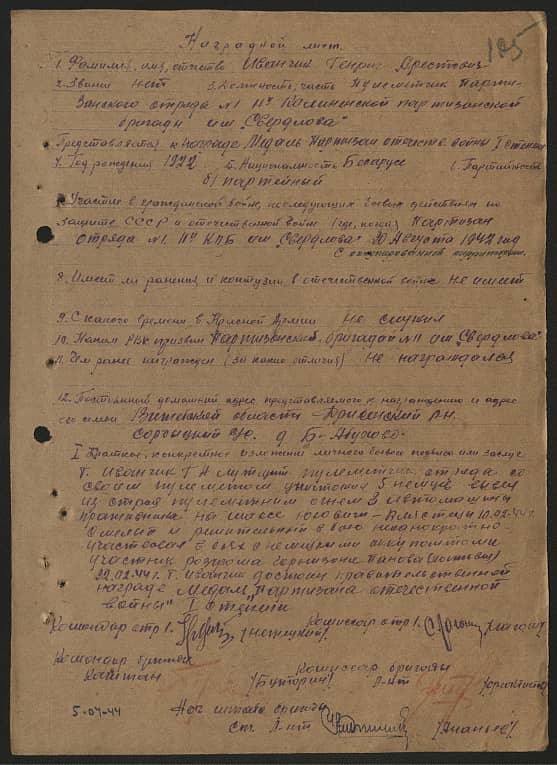 185
Наградной лист
1. Фамилия, имя, отчество Ивончик Генрих Орестович
2. Звание нет 3. Должность, часть Пулеметчик Парти-
занского отряда №1 11й Калининской партизанской
бригады им „Свердлова"
Представляется к награде Медаль Партизан отечеств войны I степени
4. Год рождения 1922 5. Национальность Беларус 6. Партийность
б/партейный
7. Участие в гражданской войне, последующих боевых действиях по
защите СССР и отечественной войне (где, когда) Партизан
отряда №1 11й КПБ им „Свердлова" 20 Августа 1942 год
С оккупированной территории.
8. Имеет ли ранения и контузии в отечественной войне не имеет
9. С какого времени в Красной Армии Не служил
10. Каким РВК призван Партизанской бригадой №11 им „Свердлова"
11. Чем ранее награжден (за какие отличия) Не награждался
12. Постоянный домашний адрес представляемого к награждению и адрес
его семьи области - Дрисенский р-н.
с/с. д Б-
I Краткое, конкретное изложение личного боевого подвига или заслуг
Т. Ивончик Г А пулеметчик отряда со
своим пулеметом уничтожил 5 немцев вывел
из строя пулеметним огнем 3 автомашины
противника на шоссе - 10.02.44г.
Смелый и решительный в бою неоднократно
участвовал в боях с немецкими оккупантами
участник розгрома горнизона
22.02.44г. Т. Ивончик достоин правительственной
награде Медаль „Партизана отечественной
войны" I степени
Командир отр 1. Комиссар отр 1.
Командир бригады Комиссар бригады
Капитан Л-нт
5-04-44 Нач штаба бригады
Ст. Л-нт